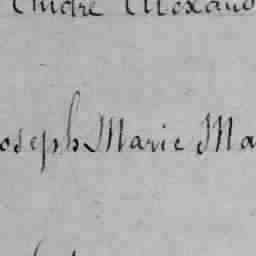 André Alexand
oseph Marie Ma